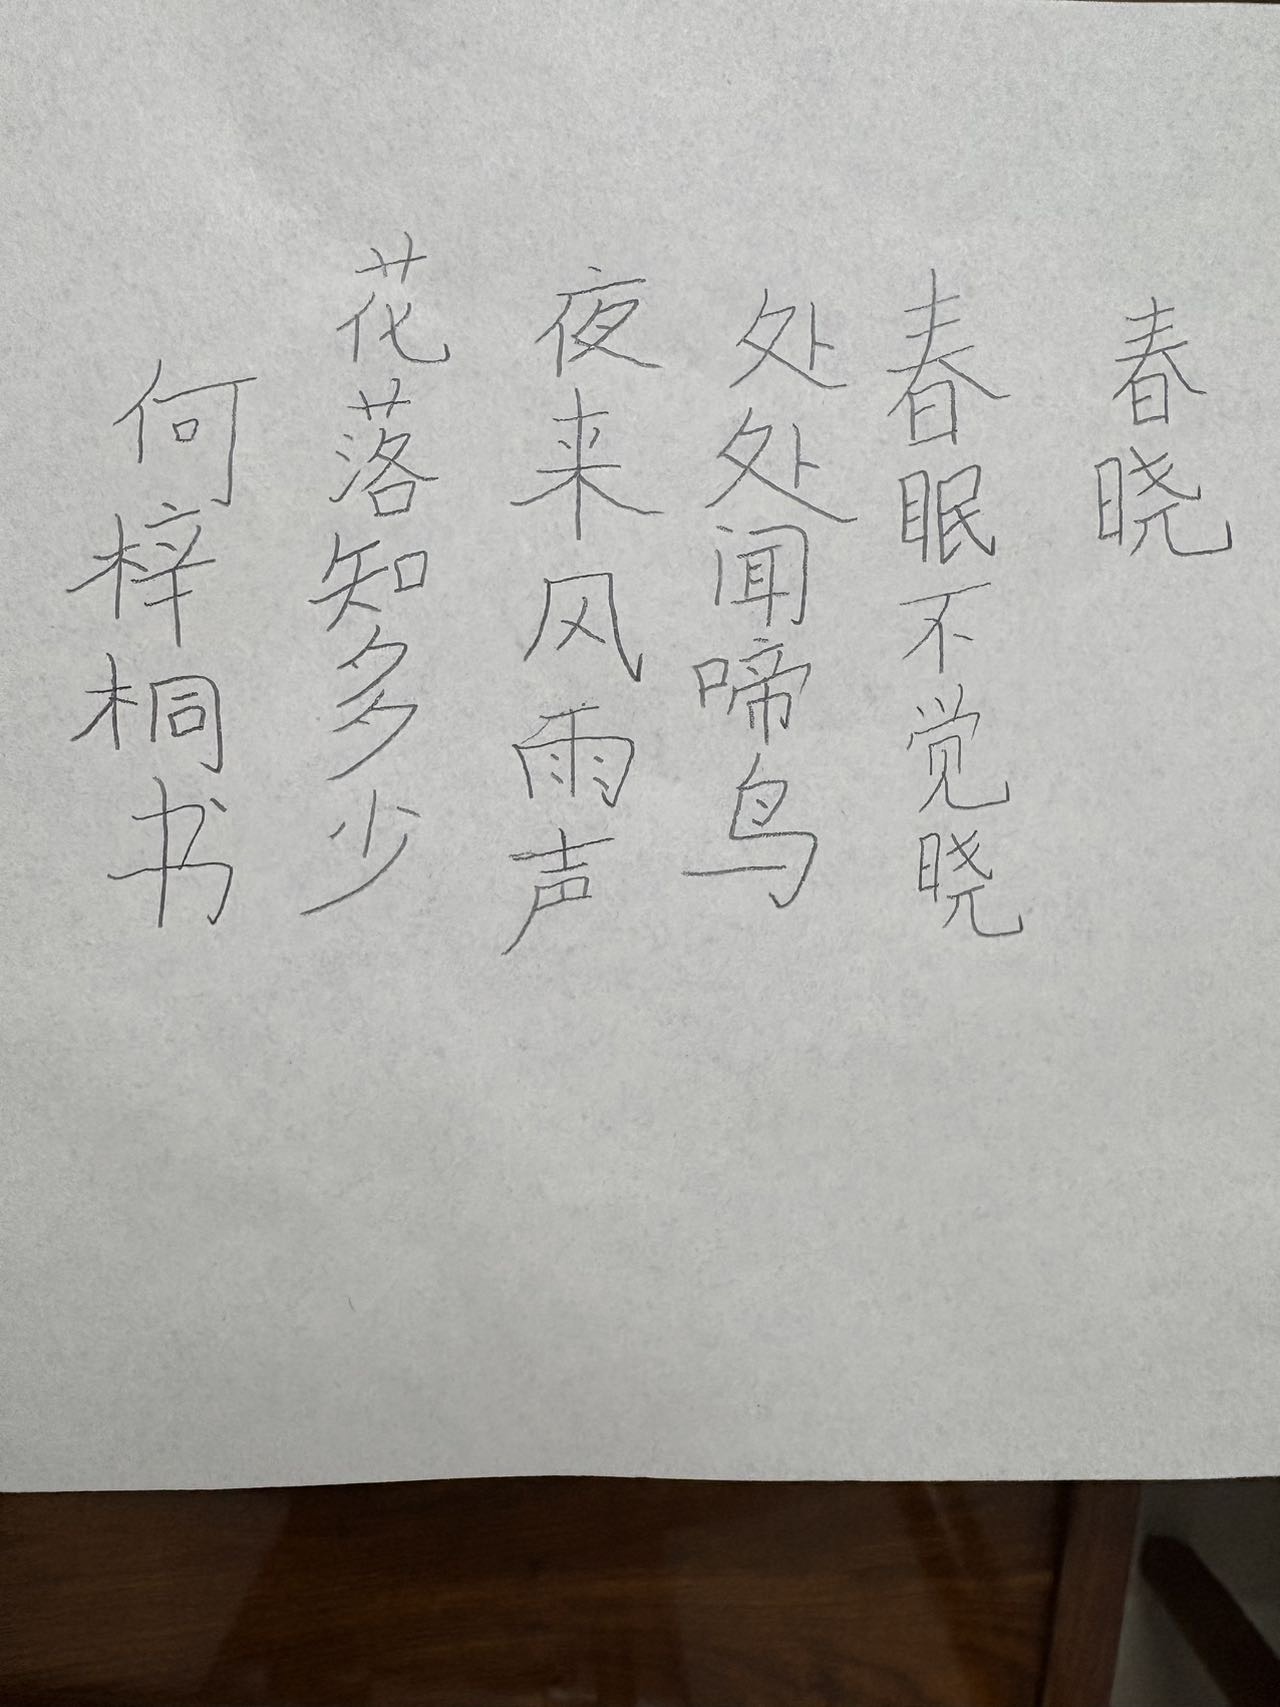 春晓
春眠不觉晓
处处闻啼鸟
夜来风雨声
花落知多少
何梓桐书